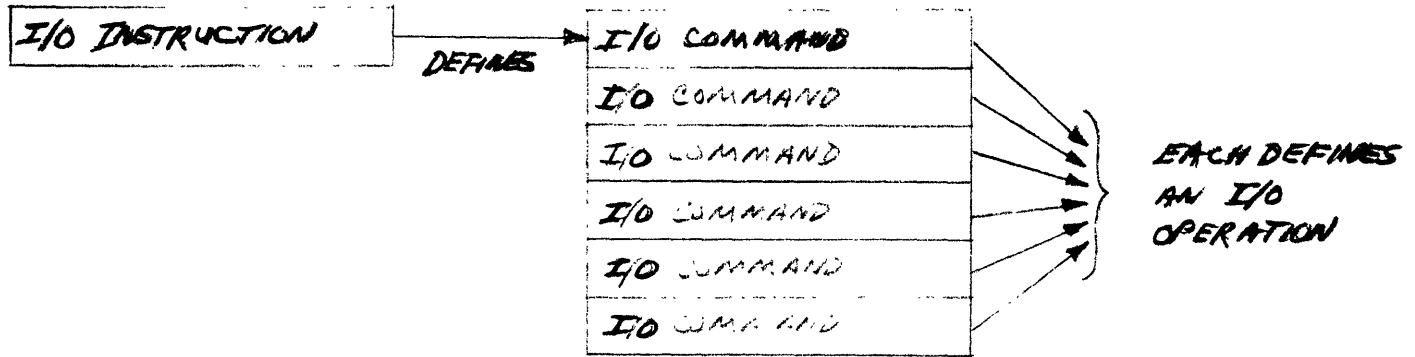 I/O INSTRUCTION
DEFINES
I/O COMMAND
I/O COMMAND
I/O COMMAND
I/O COMMAND
I/O COMMAND
I/O COMMAND
EACH DEFINES
AN I/O
OPERATION